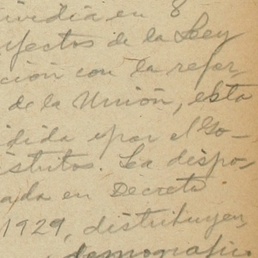 ividía en 8
efectos de la Ley
ción con la refor
de la Unión, esta
dida por el Go-
stritos. La dispo-
ada en Decreto
1929, distribuyen
demografic